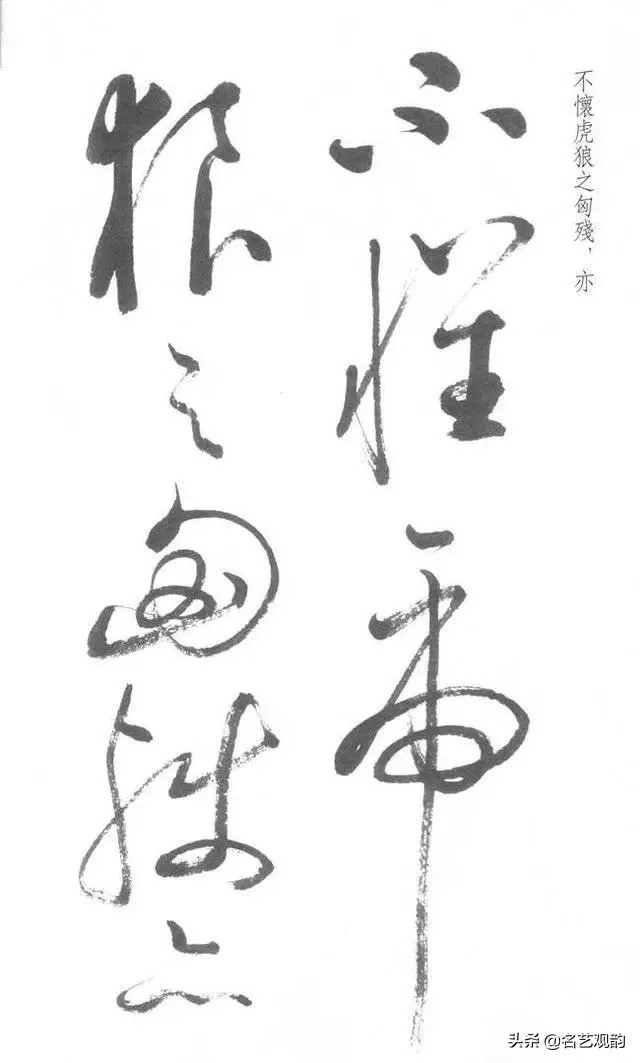 不懷虎狼之匈殘，亦
不懼虎
狼之匈殘亦
头条 @名艺观韵